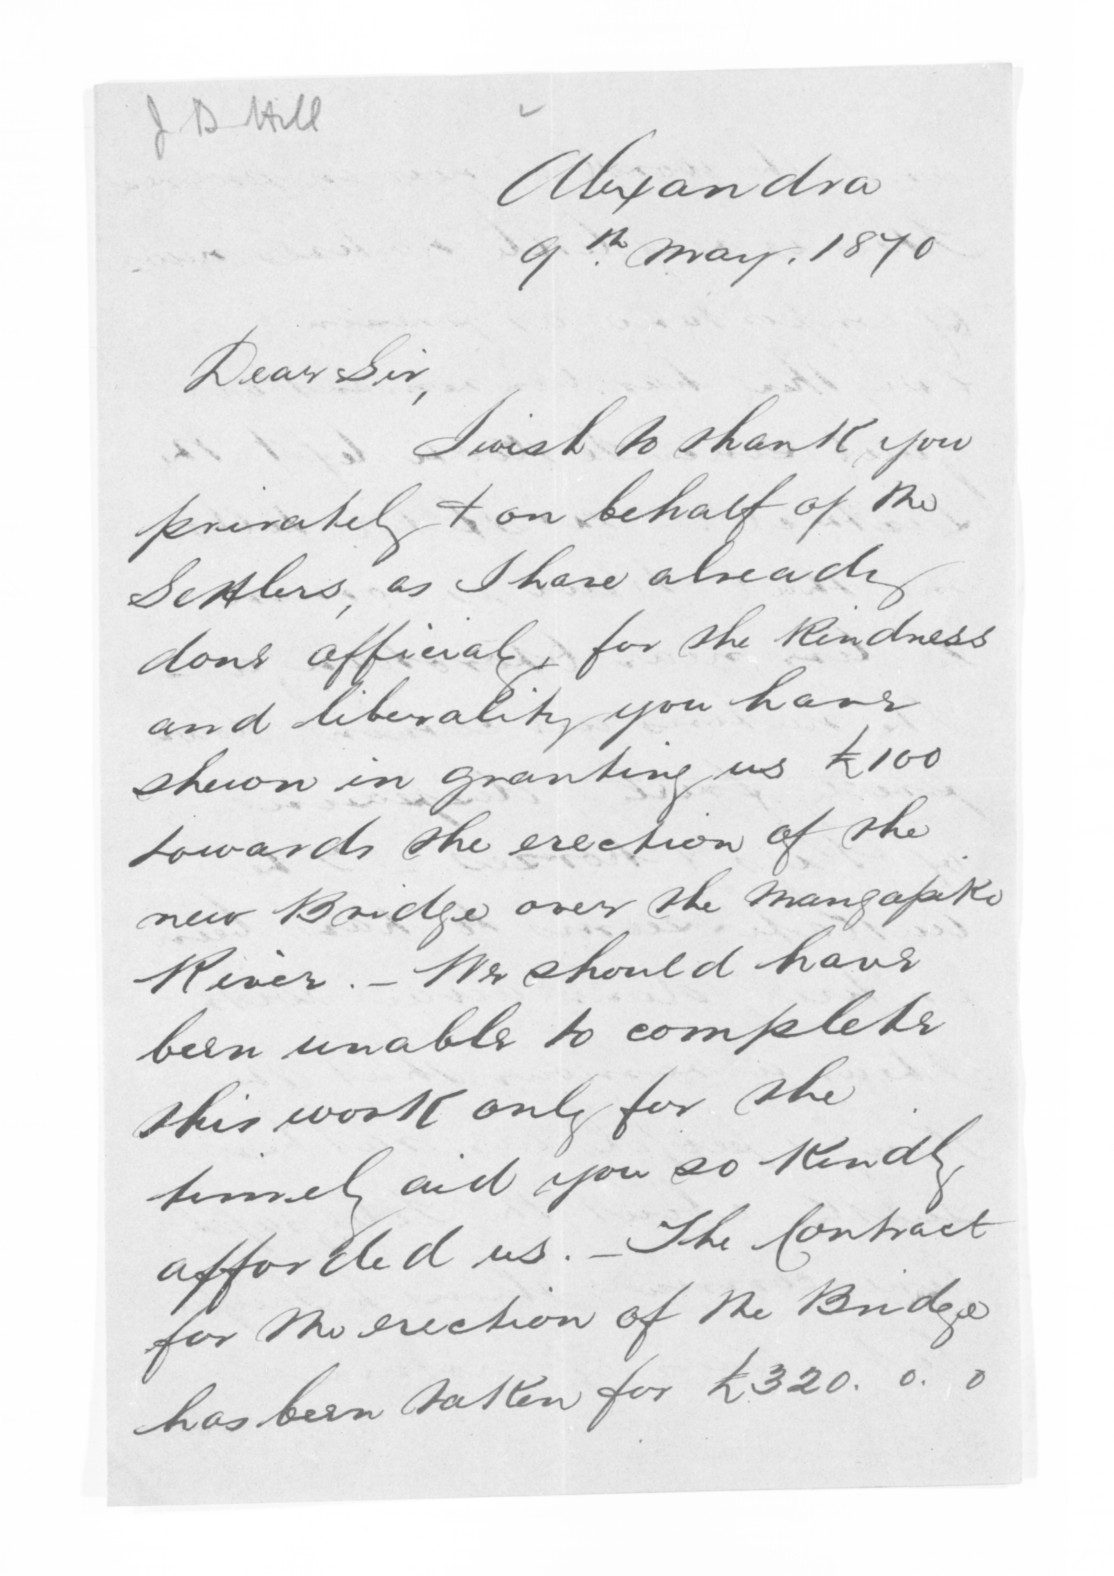 J B Hill
Alexandra
9th. May. 1870
Dear Sir,
I wish to thank you
privately + on behalf of the
Settlers, as I have already
done officialy, for the kindness
and liberality you have
shewn in granting us £100
towards the erection of the
new Bridge over the Mangapiko
River. - We should have
been unable to complete
this work only for the
timely aid you so kindly
afforded us. - The Contract
for the erection of the Bridge
has been taken for £320. 0. 0